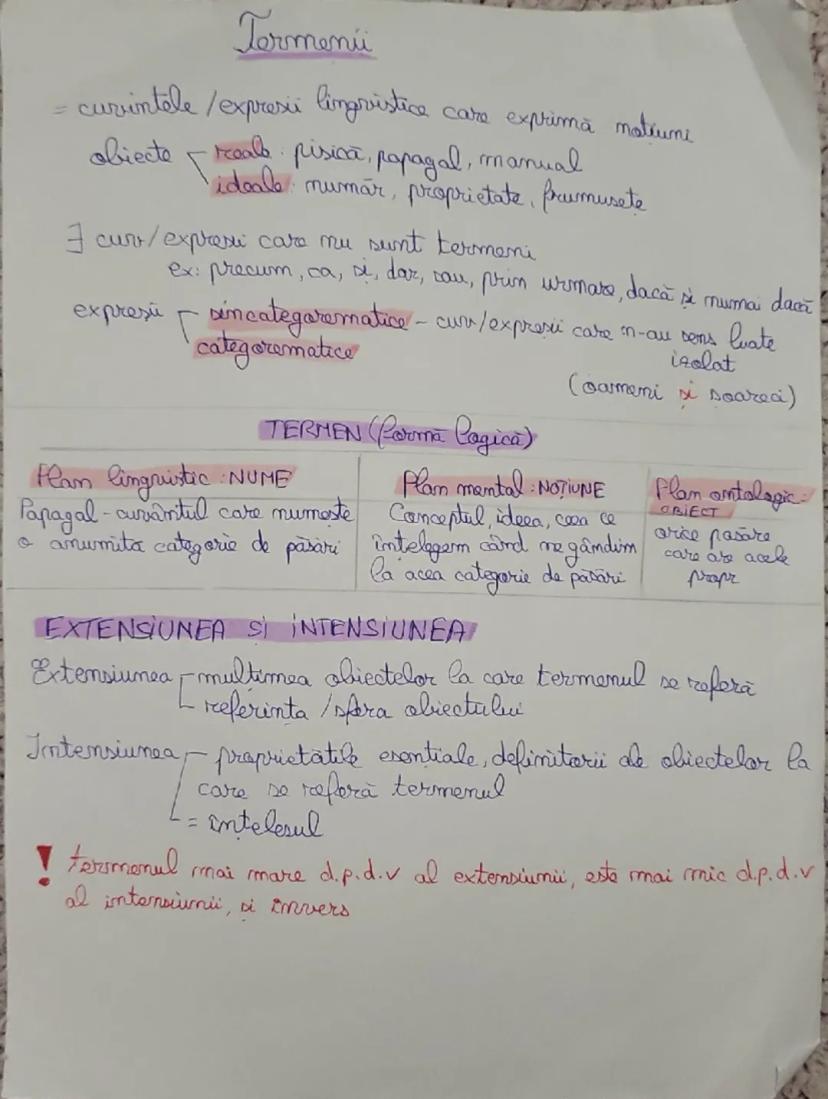 Termenii
= cuvintele /expresii lingvistice care exprimă noțiuni
obiecte reale: pisică, papagal, manual
ideale: număr, proprietate, frumusețe
∃ cuv/expresii care nu sunt termeni
ex: precum, ca, și, dar, sau, prin urmare, dacă și numai dacă
expresii sincategorematice - cuv/expresii care n-au sens luate
categorematice
izolat
(oameni și șoareci)
TERMEN (formă logică)
Plan lingvistic: NUME
Papagal - cuvântul care numește
o anumită categorie de păsări
Plan mental: NOȚIUNE
Conceptul, ideea, ceea ce
înțelegem când ne gândim
la acea categorie de păsări
Plan ontologic:
OBIECT
orice pasăre
care are acele
propr
EXTENSIUNEA ȘI INTENSIUNEA
Extensiunea mulțimea obiectelor la care termenul se referă
referința /sfera obiectului
Intensiunea proprietățile esențiale, definitorii ale obiectelor la
care se referă termenul
= înțelesul
! termenul mai mare d.p.d.v al extensiunii, este mai mic d.p.d.v
al intensiunii, și invers